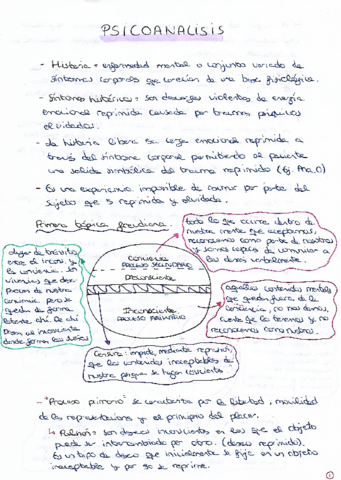 PSICOANALISIS
- Histeria = enfermedad mental o conjunto variado de
síntomas corporales que carecían de una base fisiológica.
- Síntomas histéricos = son descargas violentas de energía
emocional reprimida causada por traumas psíquicos
olvidados.
- La histeria libera su carga emocional reprimida a
través del síntoma corporal permitiendo al paciente
una salida simbólica del trauma reprimido (Ej. Ana O)
- Es una experiencia imposible de asumir por parte del
sujeto que es reprimida y olvidada.
Primera tópica freudiana:
todo lo que ocurre dentro de
nuestra mente que aceptamos,
reconocemos como parte de nosotros
y somos capaces de comunicar a
los demás verbalmente.
Lugar de tránsito
entre el incons. y
la conciencia. Son
vivencias que desa-
parecen de nuestra
conciencia pero se
quedan de forma
latente ahí. De ahí
pasan al inconsciente
donde forman los sueños
Consciente
PROCESO SECUNDARIO
Preconsciente
Inconsciente
PROCESO PRIMARIO
aquellos contenidos mentales
que quedan fuera de la
conciencia, no nos damos
cuenta que la tenemos y no
reconocemos como nuestros.
Censura: impide, mediante represión,
que los contenidos inaceptables de
nuestra psique se hagan conscientes
- "Proceso primario" se caracteriza por la libertad, movilidad
de las representaciones y el principio del placer.
↳ Pulsión: son deseos inconscientes en los que el objeto
puede ser intercambiado por otro. (deseo reprimido).
Es un tipo de deseo que inicialmente se fija en un objeto
inaceptable y por eso se reprime.
1